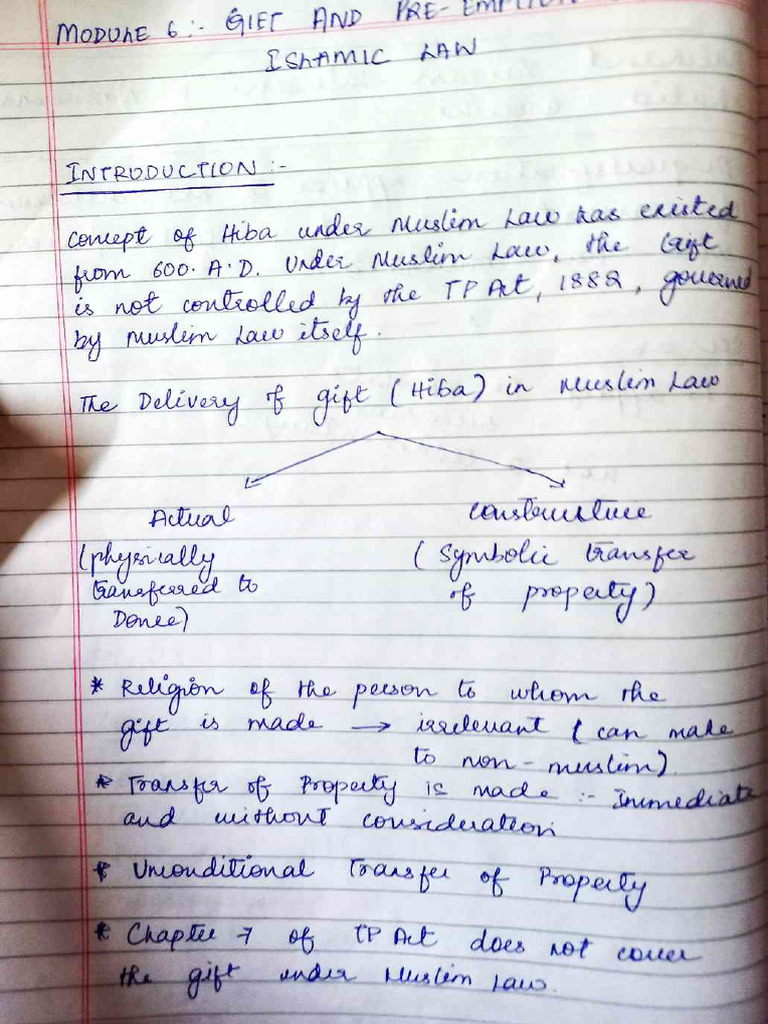 MODULE 6 :- GIFT AND PRE-EMPTION
ISLAMIC LAW
INTRODUCTION :-
Concept of Hiba under Muslim Law has existed
from 600. A.D. Under Muslim Law, the Gift
is not controlled by the TP Act, 1882, governed
by Muslim Law itself.
The Delivery of gift (Hiba) in Muslim Law
Actual
Constructive
(physically
(Symbolic transfer
transferred to
of property)
Donee)
* Religion of the person to whom the
gift is made → irrelevant (can made
to non-muslim)
* Transfer of Property is made :- Immediate
and without consideration
* Unconditional Transfer of Property
* Chapter 7 of TP Act does not cover
the gift under Muslim Law.